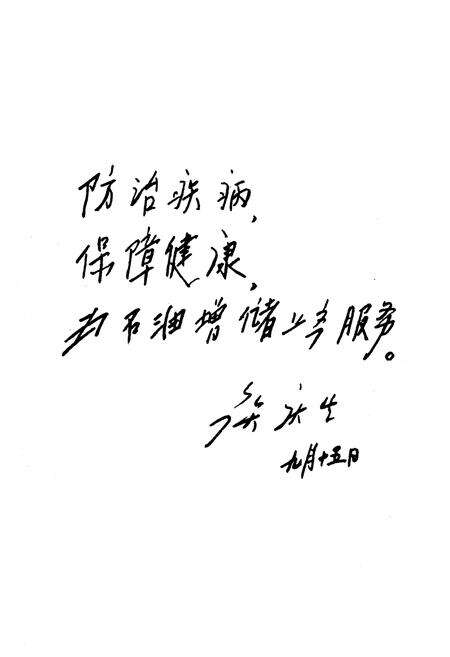 防治疾病，
保障健康，
为石油增储上产服务。
庆生
九月十五日